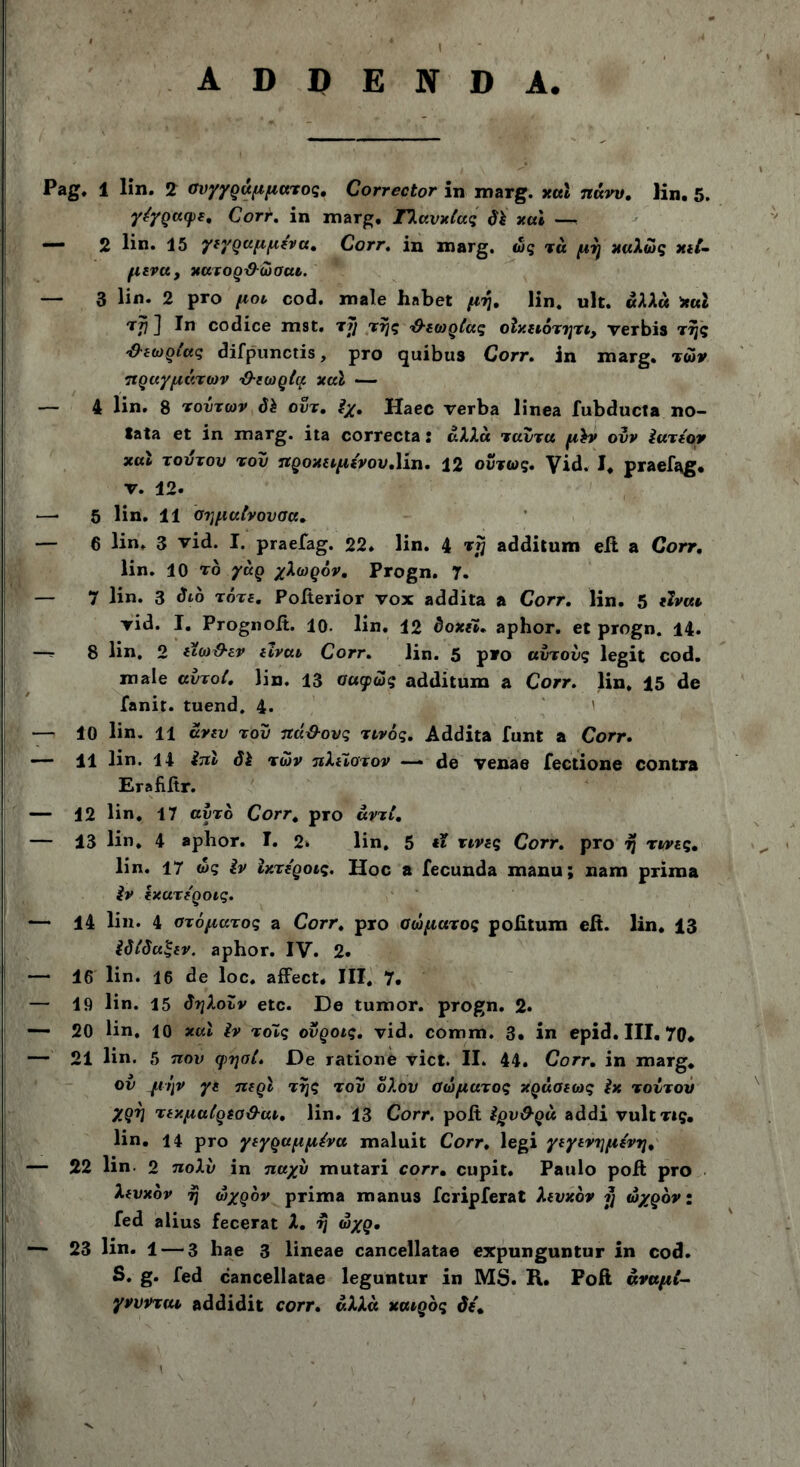 ADDENDA.
Pag. 1 lin. 2 συγγράμματος. Corrector in marg. καὶ πάνυ. lin. 5.
γέγραφε. Corr. in marg. Πλαυκίας δὲ καὶ —
— 2 lin. 15 γεγραμμένα. Corr. in marg. ὡς τὰ μὴ καλῶς κεί-
μενα, κατορθῶσαι.
— 3 lin. 2 pro μοι cod. male habet μή. lin. ult. ἀλλὰ καὶ
τῇ] In codice mst. τῇ τῆς θεωρίας οἰκειότητι, verbis τῆς
θεωρίας diſpunctis, pro quibus Corr. in marg. τῶν
πραγμάτων θεωρίᾳ καὶ —
— 4 lin. 8 τούτων δὲ οὔτ. ἐχ. Haec verba linea ſubducta no-
tata et in marg. ita correcta: ἀλλὰ ταῦτα μὲν οὖν ἰατέον
καὶ τούτου τοῦ προκειμένου.lin. 12 οὕτως. Vid. I. praeſag.
v. 12.
— 5 lin. 11 σημαίνουσα.
— 6 lin. 3 vid. I. praefag. 22. lin. 4 τῇ additum eſt a Corr.
lin. 10 τὸ γὰρ χλωρόν. Progn. 7.
— 7 lin. 3 διὸ τότε. Poſterior vox addita a Corr. lin. 5 εἶναι
vid. I. Prognoſt. 10. lin. 12 δοκεῖ. aphor. et progn. 14.
— 8 lin. 2 εἴωθεν εἶναι Corr. lin. 5 pro αὐτοὺς legit cod.
male αὐτοί. lin. 13 σαφῶς additum a Corr. lin. 15 de
ſanit. tuend. 4.
— 10 lin. 11 ἄνευ τοῦ πάθους τινός. Addita ſunt a Corr.
— 11 lin. 14 ἐπὶ δὲ τῶν πλεῖστον — de venae ſectione contra
Eraſiſtr.
— 12 lin. 17 αὐτὸ Corr. pro ἀντί.
— 13 lin. 4 aphor. I. 2. lin. 5 εἴ τινες Corr. pro ἤ τινες.
lin. 17 ὡς ἐν ἰκτέροις. Hoc a ſecunda manu; nam prima
ἐν ἑκατέροις.
— 14 lin. 4 στόματος a Corr. pro σώματος poſitum eſt. lin. 13
ἐδίδαξεν. aphor. IV. 2.
— 16 lin. 16 de loc. affect. III. 7.
— 19 lin. 15 δηλοῖν etc. De tumor. progn. 2.
— 20 lin. 10 καὶ ἐν τοῖς οὔροις. vid. comm. 3. in epid. III. 70.
— 21 lin. 5 που φησί. De ratione vict. II. 44. Corr. in marg.
οὐ μήν γε περὶ τῆς τοῦ ὅλου σώματος κράσεως ἐκ τούτου
χρὴ τεκμαίρεσθαι. lin. 13 Corr. poſt ἐρυθρὰ addi vult τις.
lin. 14 pro γεγραμμένα maluit Corr. legi γεγενημένη.
— 22 lin. 2 πολὺ in παχὺ mutari corr. cupit. Paulo poſt pro
λευκὸν ἢ ὠχρὸν prima manus ſcripſerat λευκὸν ᾖ ὠχρὸν:
ſed alius fecerat λ. ἢ ὠχρ.
— 23 lin. 1—3 hae 3 lineae cancellatae expunguntur in cod.
S. g. ſed cancellatae leguntur in MS. R. Poſt ἀναμί-
γνυνται addidit corr. ἀλλὰ καιρὸς δέ.